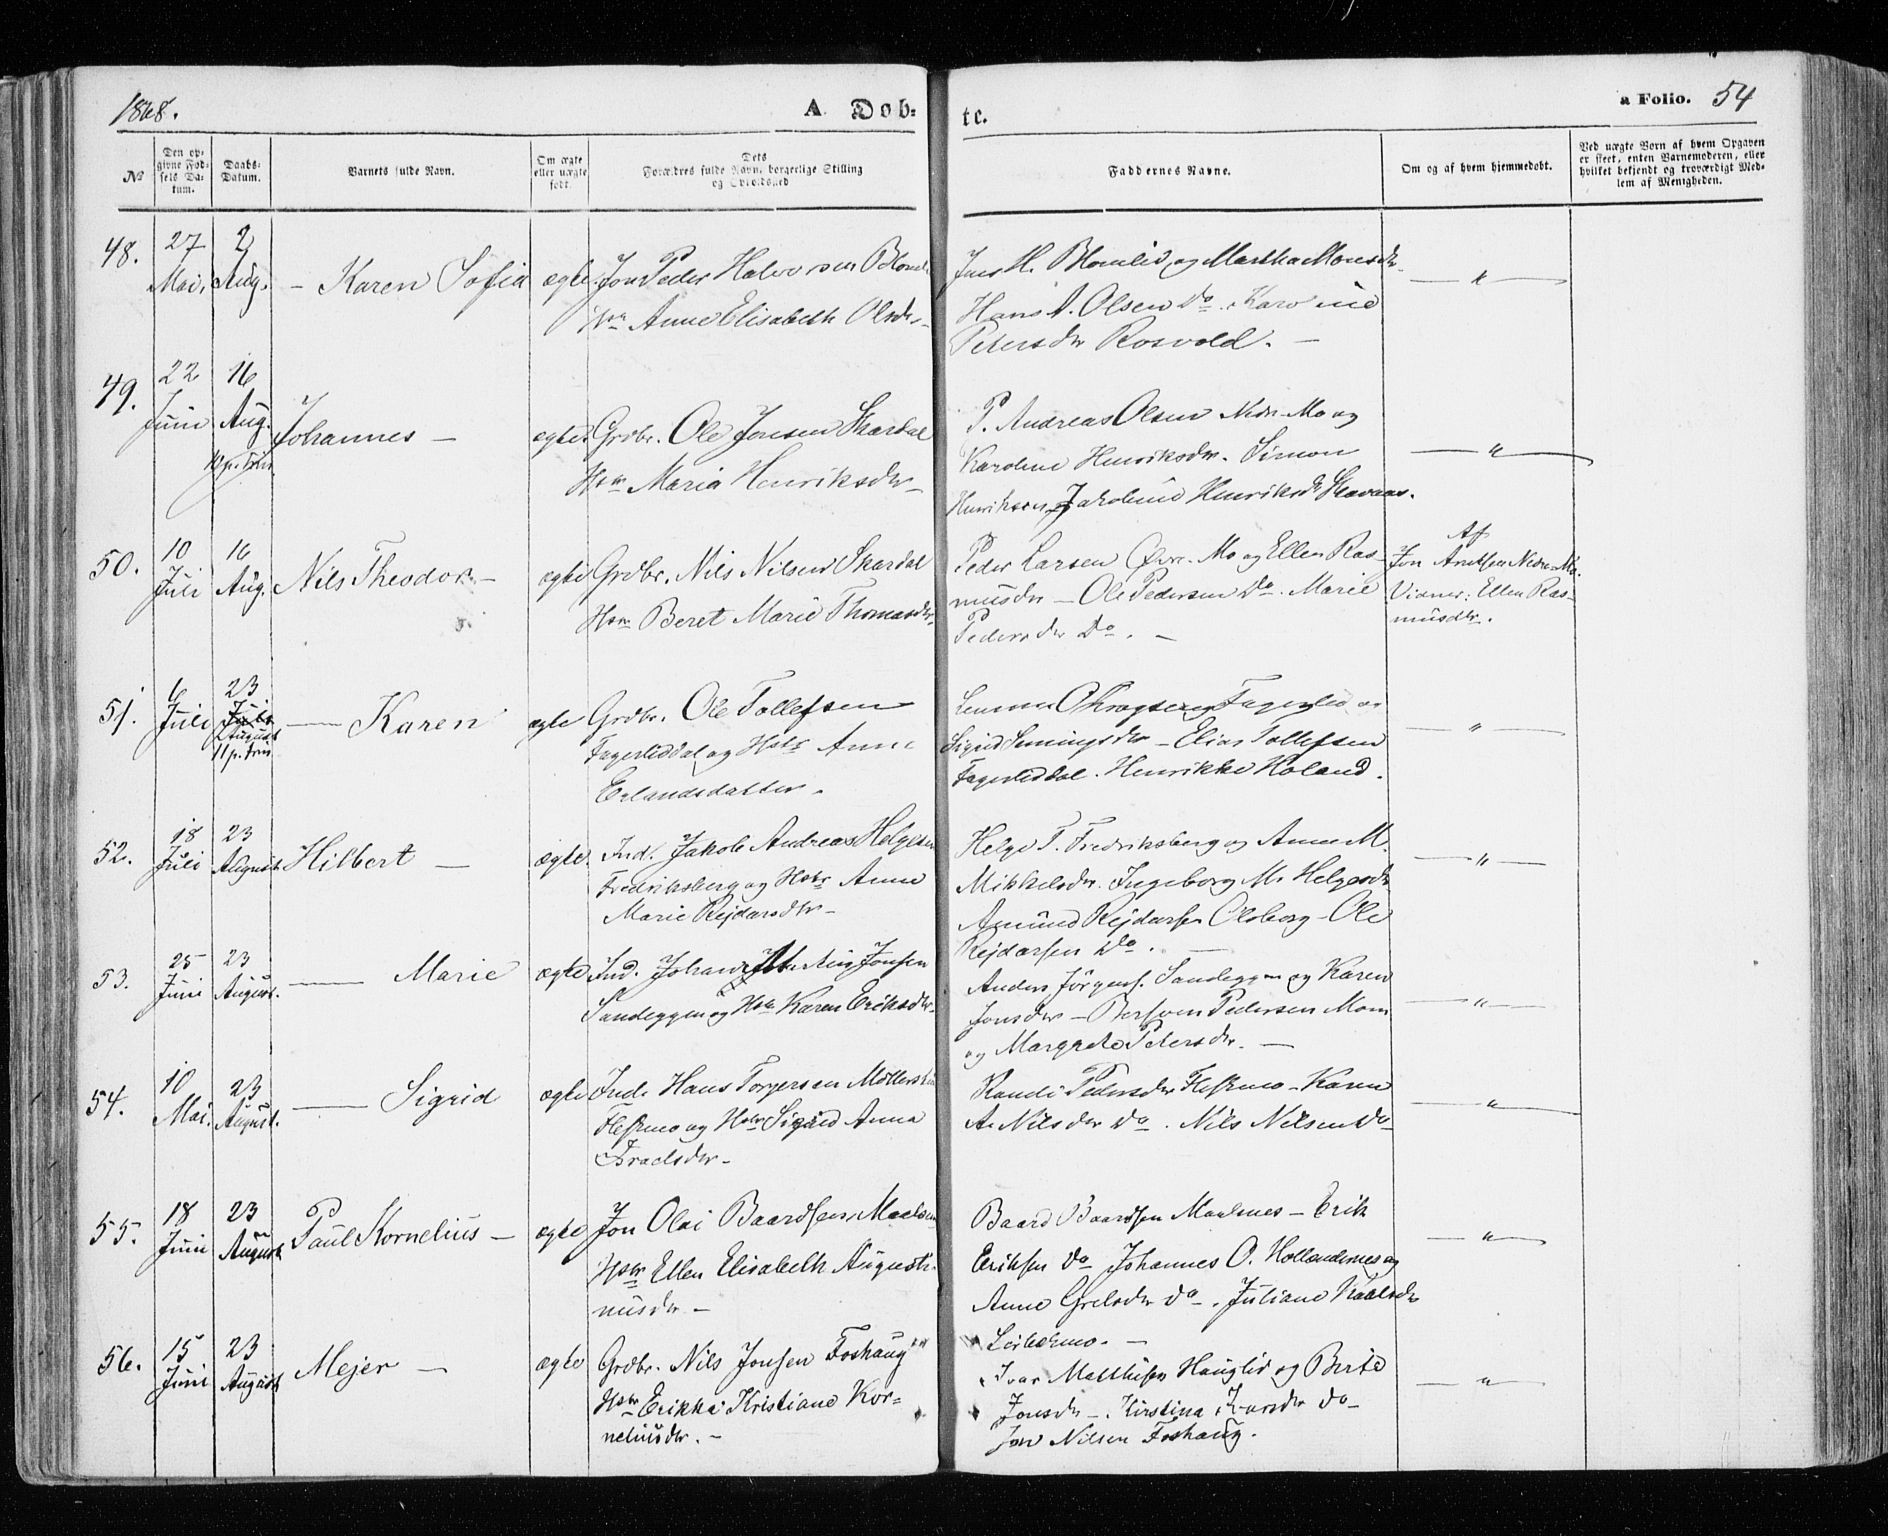 1868.
A Døb-
te.
a Folio. 54
No
Den op-
givne Fød-
sels Da-
tum.
Daabs-
Datum.
Barnets fulde Navn.
Om ægte
eller uægte
født.
Dets
Forældres fulde Navn, borgerlige Stilling
og Opholdsted
Faddernes Navne.
Om og af hvem hjemmedøbt.
Ved uægte Børn af hvem Opgaven
er skeet, enten Barnemoderen, eller
hvilket bekjendt og troværdigt Med-
lem af Menigheden.
48. 27 Mai. 2 Aug. - Karen Sofia ægte. Jon Peder Halvorsen
Hu Anne Elisabeth Olsdr-
Jens H. Blomlid og Martha Monsdr-
Hans A. Olsen Do. Karoline
Petersdr Rosvold. -
"
49. 22 Juni 16 Aug. 10 p. Trin. Johannes - ægte. Grdbr. Ole Jonsen Skardal
Hstr Maria Henriksdr-
P. Andreas Olsen Nedre Mo og
Karoline Henriksdr. Simon
Henriksen Jakobine Henriksdr
"
50. 10 Juli 16 Aug. Nils Theodor - ægte Grdbr. Nils Nilsen Skardal
Hstr Beret Marie Thomasdr-
Peder Larsen Øvre Mo og Ellen Ras-
musdr - Ole Pedersen Do. Marie
Pedersdr Do. -
Af
Jon Arntsen Nedre Mo.
Vidner: Ellen Ras-
musdtr.
51. 6 Juli 23 Juli August 11 p. Trin. - Karen ægte Grdbr. Ole Tollefsen
Fagerliddal og Hstr Anne
Erlandsdatter.
Fagerlid
Sigrid Simingsdr - Elias Tollefsen
Fagerliddal. Henrikke Holand.
"
52. 18 Juli 23 August Hilbert - ægte. Ind. Jakob Andreas Helgesen
Fredriksberg og Hstr Anne
Marie Rejdarsdtr-
Helge T. Fredriksberg og Anne M.
Mikkelsdr. Ingeborg M. Helgesdr
Amund Rejdarsen Olsborg - Ole
Rejdarsen Do. -
"
53. 25 Juni 23 August. - Marie ægte Ind. Johan Jonsen
Sandeggen og Hstr Karen Eriksdtr-
Anders Jørgens. Sandeggen og Karen
Jonsdr - Berfven Pedersen Moen
og Margrete Petersdr. -
"
54. 10 Mai. 23 August. - Sigrid ægte Ind. Hans Torgersen
Fleskmo og Hstr Sigrid Anna
Israelsdr-
Randi Pedersdr Fleskmo - Karen
A. Nilsdr Do. Nils Nilsen Do-
"
55. 18 Juni 23 August Paul Kornelius - ægte Jon Olai Baardsen
Hstr Ellen Elisabeth Augusti-
nusdr-
Baard Baardsen Maalsnes - Erik
Eriksen Do Johannes O. Hollendernes og
Anne Do. Juliane
"
56. 15 Juni 23 August Mejer - ægte Grdbr. Nils Jonsen Foshaug
Hstr Erikka Kristiane Kor-
neliusdtr. -
Ivar Matthisen Hauglid og Berte
Jonsdr -. Kirstina Ivarsdr do-
Jon Nilsen Foshaug.
"